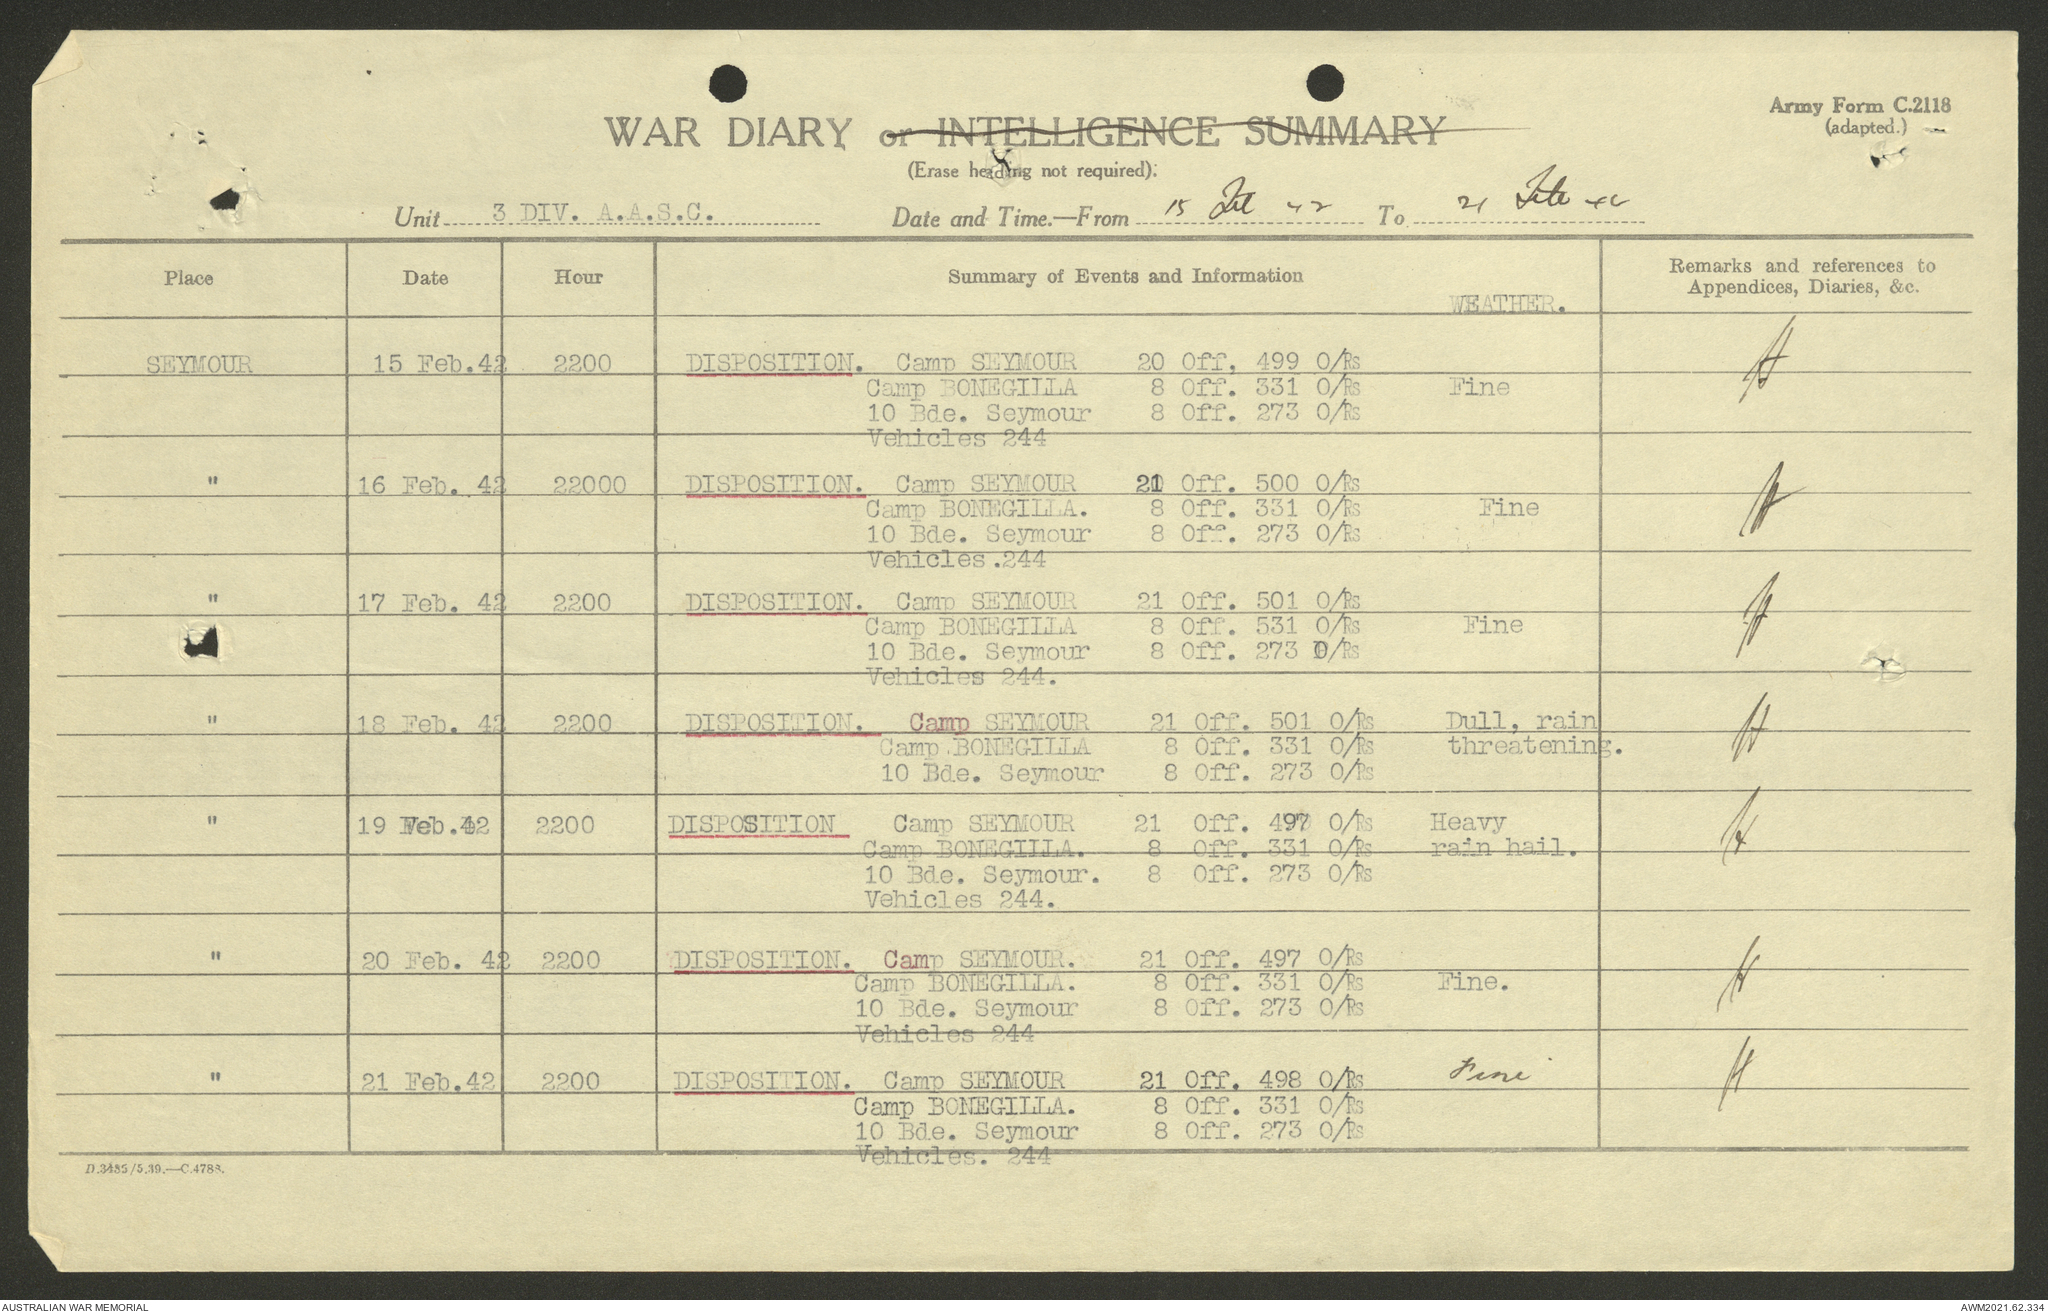 Army Form C.2118
(adapted.)
WAR DIARY or INTELLIGENCE SUMMARY
(Erase heading not required).
Unit 3 DIV. A.A.S.C. Date and Time.—From 15 Feb 42 To 21 Feb 42
Place Date Hour Summary of Events and Information Remarks and references to
Appendices, Diaries, &c.
WEATHER.
SEYMOUR 15 Feb.42 2200 DISPOSITION. Camp SEYMOUR 20 Off. 499 O/Rs
Camp BONEGILLA 8 Off. 331 O/Rs Fine
10 Bde. Seymour 8 Off. 273 O/Rs
Vehicles 244
" 16 Feb. 42 22000 DISPOSITION. Camp SEYMOUR 21 Off. 500 O/Rs
Camp BONEGILLA. 8 Off. 331 O/Rs Fine
10 Bde. Seymour 8 Off. 273 O/Rs
Vehicles .244
" 17 Feb. 42 2200 DISPOSITION. Camp SEYMOUR 21 Off. 501 O/Rs
Camp BONEGILLA 8 Off. 531 O/Rs Fine
10 Bde. Seymour 8 Off. 273 O/Rs
Vehicles 244.
" 18 Feb. 42 2200 DISPOSITION. Camp SEYMOUR 21 Off. 501 O/Rs Dull, rain
Camp BONEGILLA 8 Off. 331 O/Rs threatening.
10 Bde. Seymour 8 Off. 273 O/Rs
" 19 Feb.42 2200 DISPOSITION Camp SEYMOUR 21 Off. 497 O/Rs Heavy
Camp BONEGILLA. 8 Off. 331 O/Rs rain hail.
10 Bde. Seymour. 8 Off. 273 O/Rs
Vehicles 244.
" 20 Feb. 42 2200 DISPOSITION. Camp SEYMOUR. 21 Off. 497 O/Rs
Camp BONEGILLA. 8 Off. 331 O/Rs Fine.
10 Bde. Seymour 8 Off. 273 O/Rs
Vehicles 244
" 21 Feb.42 2200 DISPOSITION. Camp SEYMOUR 21 Off. 498 O/Rs Fine
Camp BONEGILLA. 8 Off. 331 O/Rs
10 Bde. Seymour 8 Off. 273 O/Rs
Vehicles. 244
D.3485/5.39.—C.4788.
AUSTRALIAN WAR MEMORIAL AWM2021.62.334